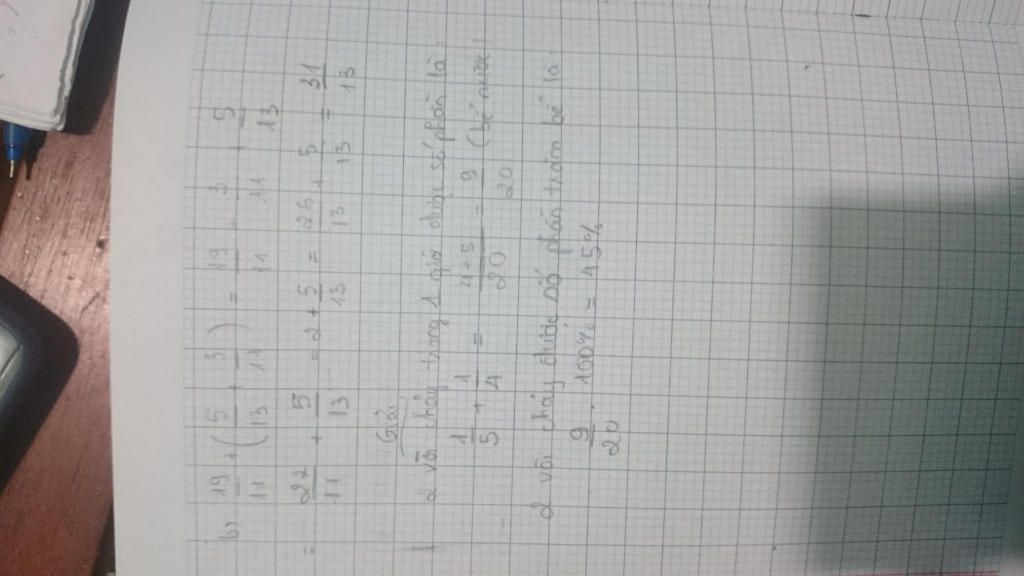 b) 19/11 + (5/13 + 3/11) = 19/11 + 3/11 + 5/13
= 22/11 + 5/13 = 2 + 5/13 = 26/13 + 5/13 = 31/13
Giải
2 vòi chảy trong 1 giờ được số phần là:
1/5 + 1/4 = 4+5/20 = 9/20 (bể nước)
2 vòi chảy được số phần trăm bể là:
9/20 . 100% = 45%